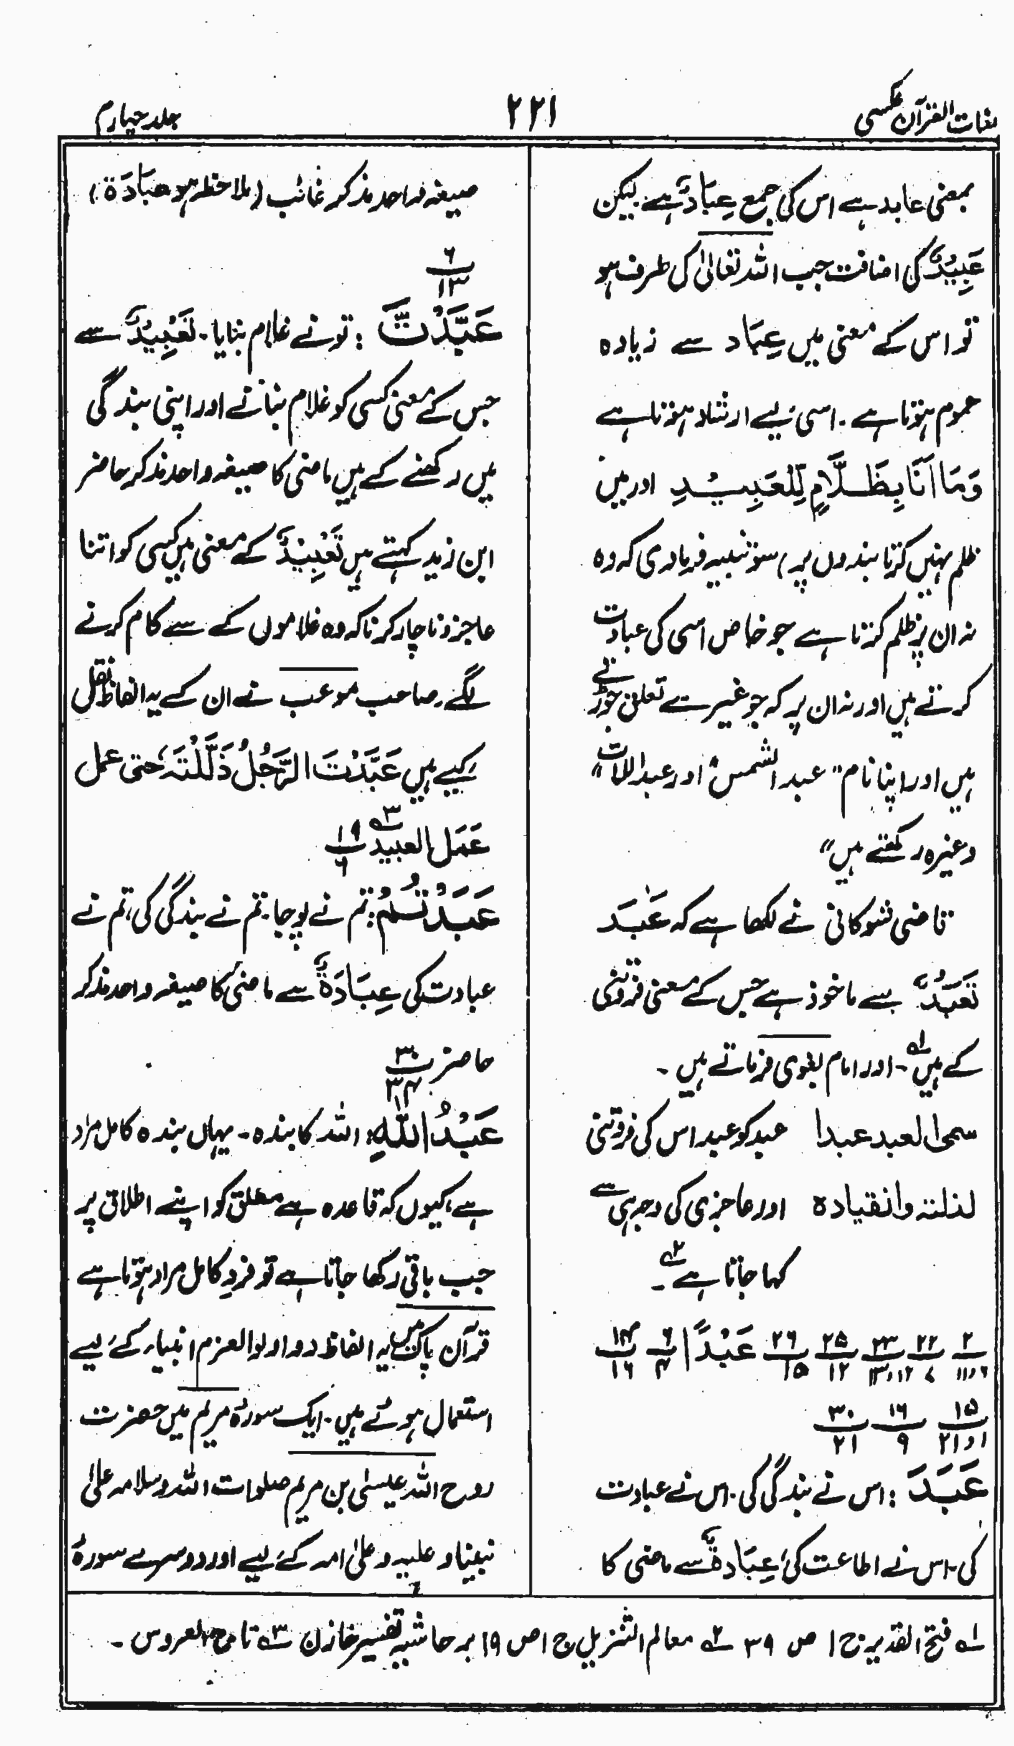 لغات القرآن عکسی
۲۲۱
جلد چہارم
بمعنی عابد ہے اس کی جمع عِبَادٌ ہے لیکن
عَبِیْدٌ کی اضافت جب اللہ تعالیٰ کی طرف ہو
تو اس کے معنی میں عِبَاد سے زیادہ
عموم ہوتا ہے۔ اسی لیے ارشاد ہوتا ہے
وَمَا اَنَا بِظَلَّامٍ لِّلْعَبِیْدِ اور میں
ظلم نہیں کرتا بندوں پر) سو تنبیہ فرمادی کہ وہ
نہ ان پر ظلم کرتا ہے جو خاص اسی کی عبادت
کرتے ہیں اور نہ ان پر کہ جو غیر سے تعلق جوڑتے
ہیں اور اپنا نام "عبد الشمس" اور عبد اللات"
وغیرہ رکھتے ہیں"
قاضی شوکانی نے لکھا ہے کہ عَبَدَ
تَعَبُّدٌ سے ماخوذ ہے جس کے معنی فروتنی
کے ہیں لہ۔ اور امام بغوی فرماتے ہیں۔
سمی العبد عبدا عبد کو عبد اس کی فروتنی
لذلتہ وانقیادہ اور عاجزی کی وجہ ہی سے
کہا جاتا ہے ۲ہ۔
۲/۱۱،۶ ۲۲/۷ ۲۳/۱۲،۱۳ ۲۵/۱۲ ۲۶/۱۵ عَبْدًا ۶/۴ ۱۴/۱۶
۱۵/۱ و ۲۱ ۱۶/۹ ۳۰/۲۱
عَبَدَ : اس نے بندگی کی۔ اس نے عبادت
کی۔ اس نے اطاعت کی، عِبَادَۃٌ سے ماضی کا
صیغہ واحد مذکر غائب (ملاحظہ ہو عِبَادَۃ)
۶/۱۳
عَبَّدْتَّ : تو نے غلام بنایا۔ تَعْبِیْدٌ سے
جس کے معنی کسی کو غلام بنانے اور اپنی بندگی
میں رکھنے کے ہیں ماضی کا صیغہ واحد مذکر حاضر
ابن زید کہتے ہیں تَعْبِیْدٌ کے معنی ہیں کسی کو اتنا
عاجز و ناچار کرنا کہ وہ غلاموں کے سے کام کرنے
لگے، صاحب موعب نے ان کے یہ الفاظ نقل
کیے ہیں عَبَّدْتَ الرَّجُلَ ذَلَّلْتَہٗ حتی عمل
عَمَلَ العبید ۳ہ ۱۹/۶
عَبَدْتُّمْ : تم نے پوجا۔ تم نے بندگی کی، تم نے
عبادت کی عِبَادَۃٌ سے ماضی کا صیغہ واحد مذکر
حاضر ۳۰/۳۴
عَبْدُ اللّٰہِ : اللہ کا بندہ۔ یہاں بندہ کامل مراد
ہے، کیوں کہ قاعدہ ہے مطلق کو اپنے اطلاق پر
جب باقی رکھا جاتا ہے تو فردِ کامل مراد ہوتا ہے
قرآن پاک میں یہ الفاظ دو اولوالعزم انبیاء کے لیے
استعمال ہوئے ہیں۔ ایک سورۂ مریم میں حضرت
روح اللہ عیسیٰ بن مریم صلوات اللہ وسلامہ علیٰ
نبینا و علیہ و علیٰ امہ کے لیے اور دوسرے سورۂ
۱ہ فتح القدیر ج ۱ ص ۳۹ ۲ہ معالم التنزیل ج ۱ ص ۱۹ بر حاشیہ تفسیر خازن ۳ہ تاج العروس۔